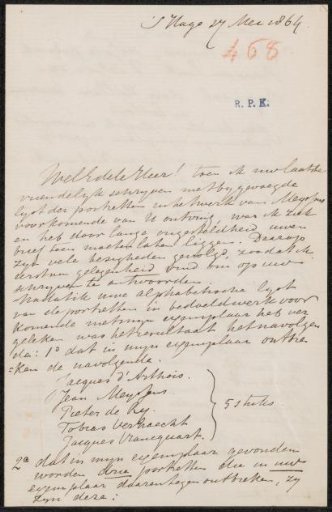 's Hage 27 Mei 1864
468
R. P. K.
WelEdele Heer! toen ik uw laatste
vriendelijk schrijven met bijgevoegde
lijst der portretten in het werk van Meyssens
voorkomende van U ontving, was ik ziek
en heb door lange ongesteldheid uwen
brief een moeten laten liggen. Daarop
zijn vele bezigheden gevolgd, zoodat ik
eerst nu gelegenheid vind om op uw
schrijven te antwoorden.
Nadat ik uwe alphabetische lijst
van de portretten in gedacht werk voor
komende met mijn exemplaar heb ver
geleken was het resultaat het navolgen
de: 1o dat in mijn exemplaar ontbre
=ken de navolgende.
Jacques d'Arthois.
Jean Meyssens
Pieter de Key.
Tobias Verhaecht
Jacques Francquart.
5 stuks
2o dat in mijn exemplaar gevonden
worden drie portretten die in uw
exemplaar daarentegen ontbreken, zij
zijn deze: